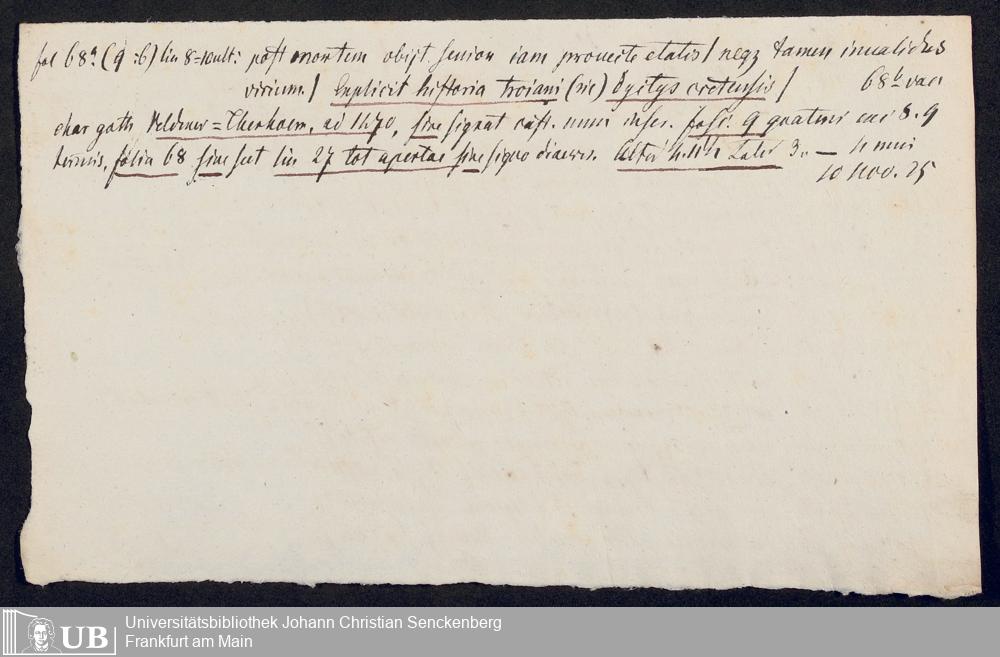 fol 68ª (9 :6) lin 8= : post mortem obijt senior iam prouecte etatis / neqz tamen inualidus
virium. / Explicit historia troiani (sic) dyctys cretensis / 68ᵇ vac
char goth Veldener = Therhoern, ai 1470, sine signat cust. num inser. fasc 9 quaterni 8. 9
ternis, folia 68 sine lin 27 tot apertae sine signo
10 Nov. 25
UB
Universitätsbibliothek Johann Christian Senckenberg
Frankfurt am Main